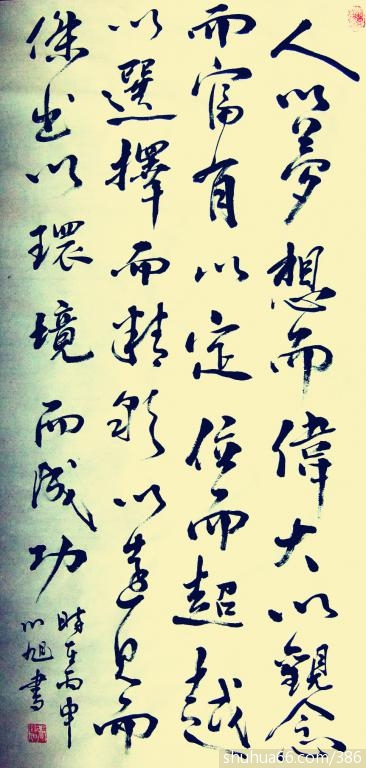 人以夢想而偉大以觀念
而富有以定位而超越
以選擇而精彩以遠見而
傑出以環境而成功
時在丙申
旭書
shuhua66.com/386